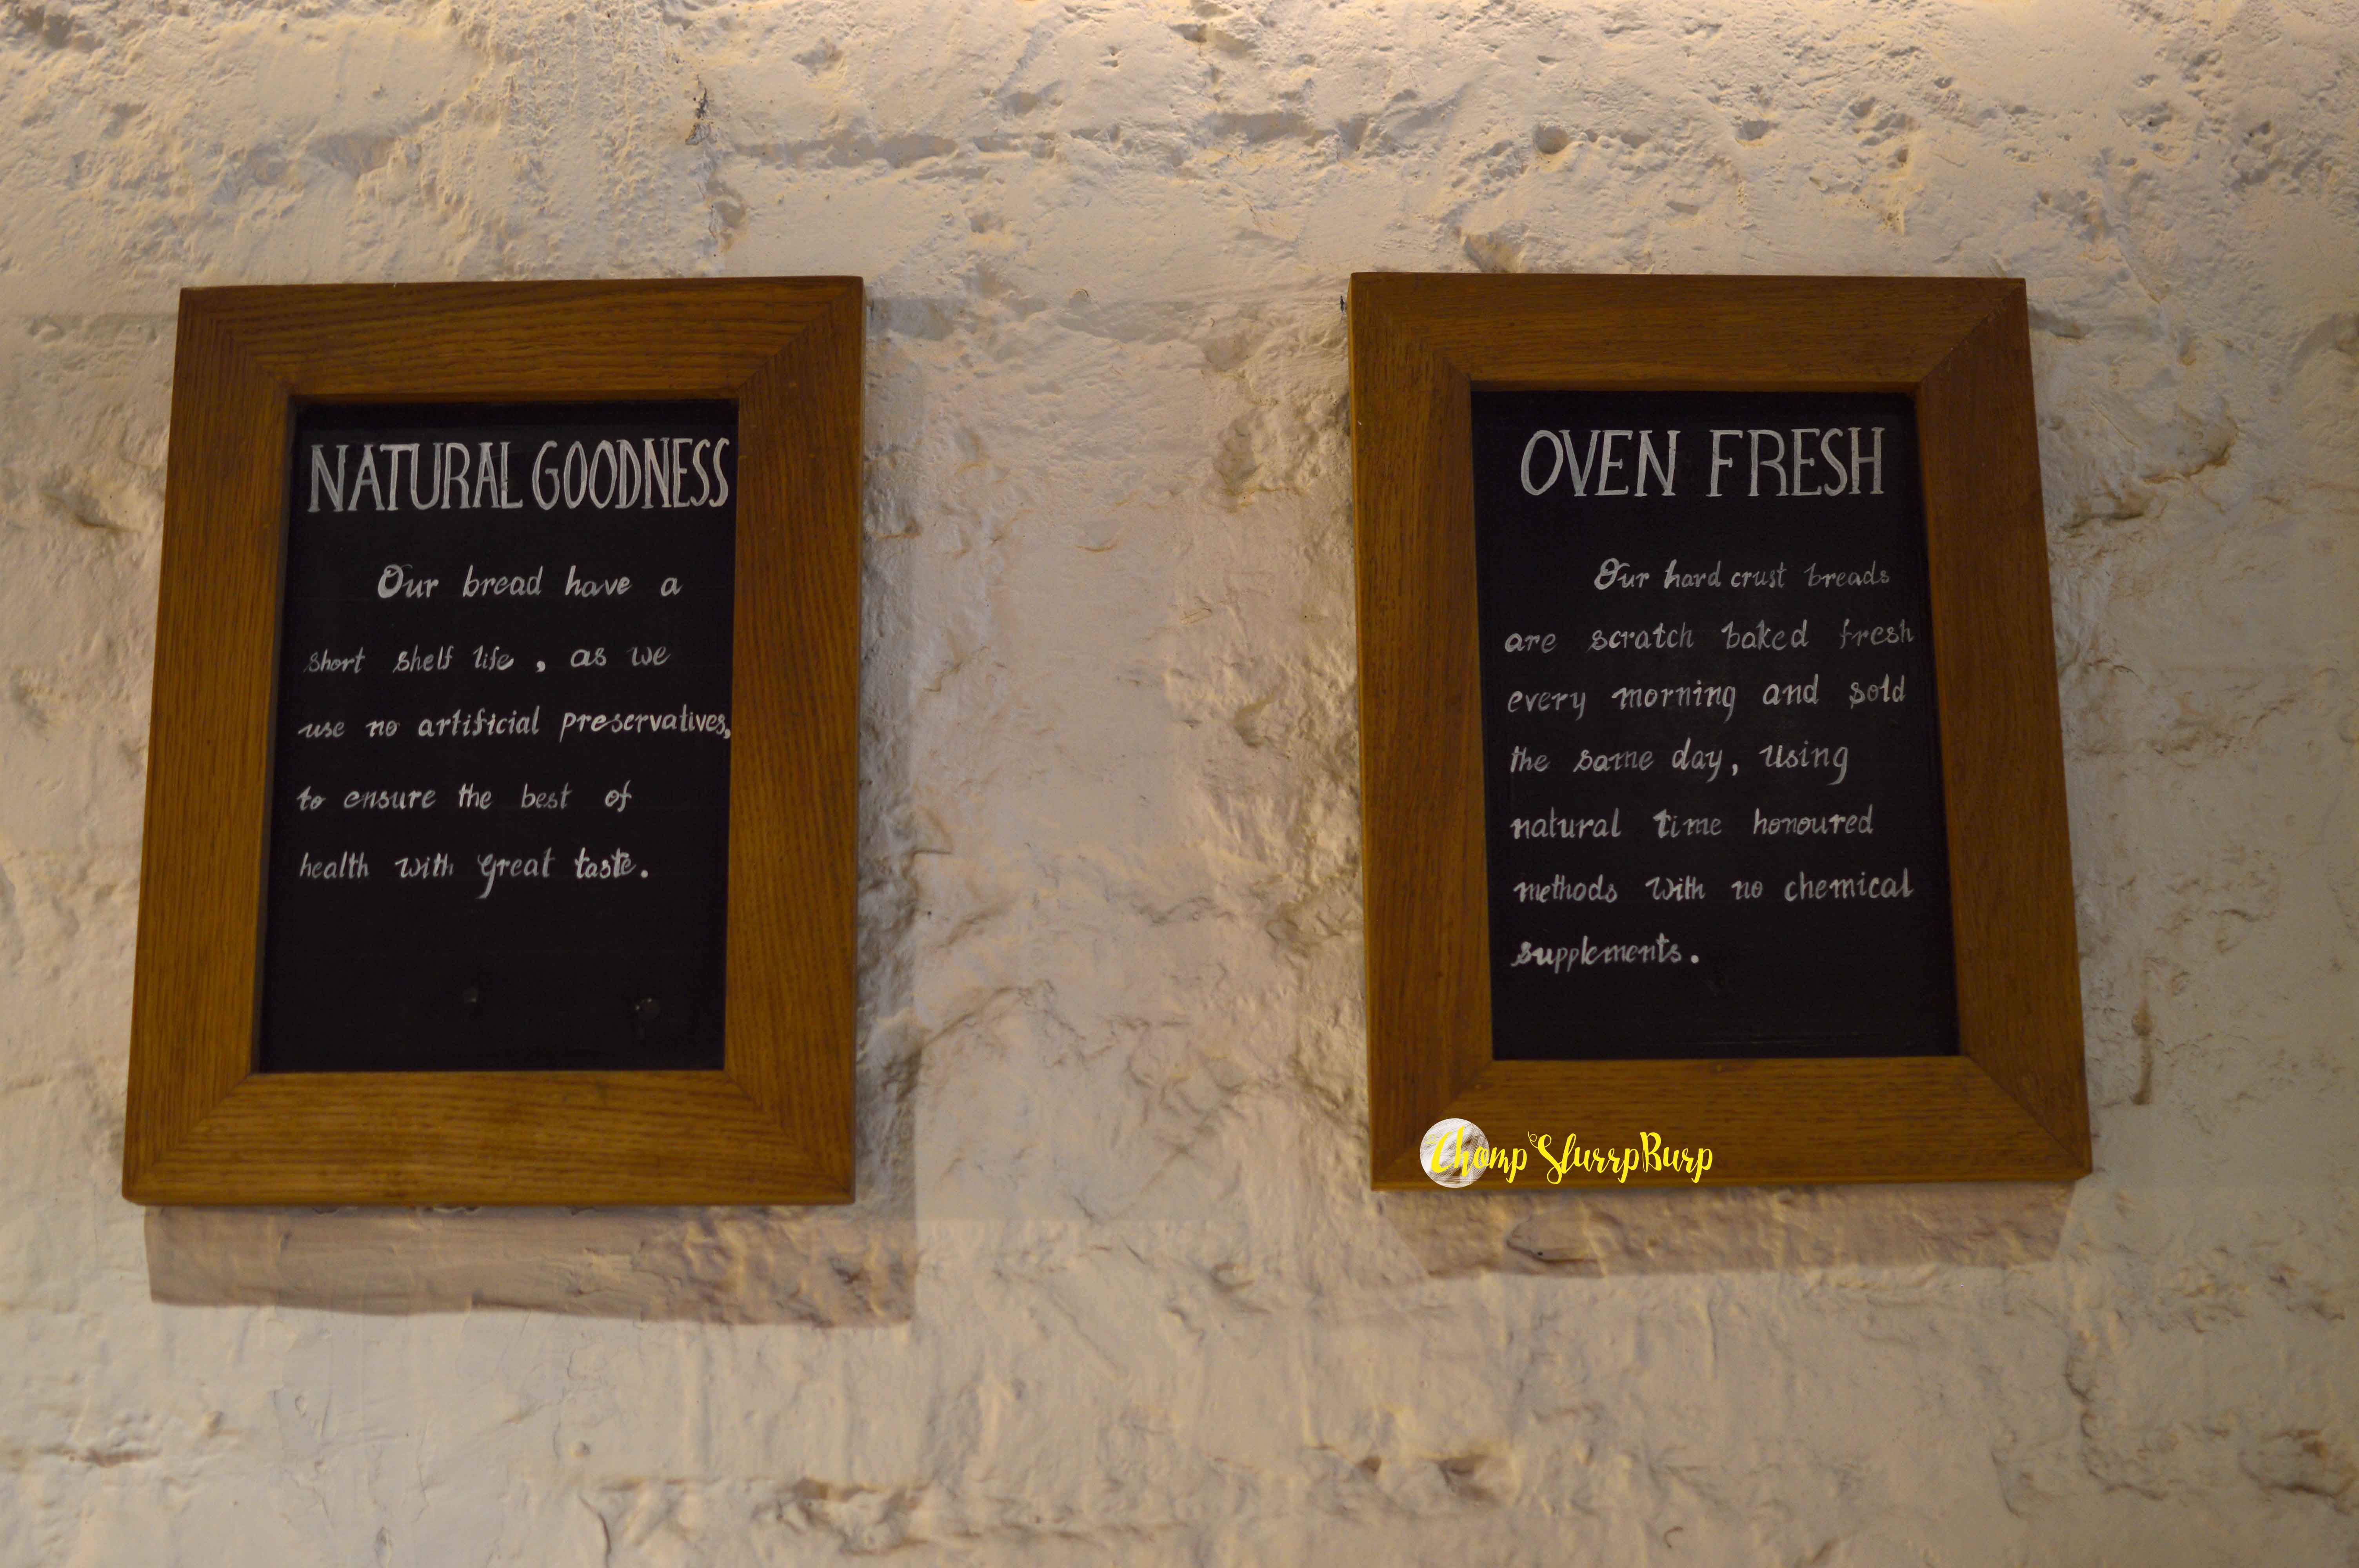 NATURAL GOODNESS
Our bread have a
short shelf life, as we
use no artificial preservatives,
to ensure the best of
health with great taste.
OVEN FRESH
Our hard crust breads
are scratch baked fresh
every morning and sold
the same day, using
natural time honoured
methods with no chemical
supplements.
Chomp SlurrpBurp